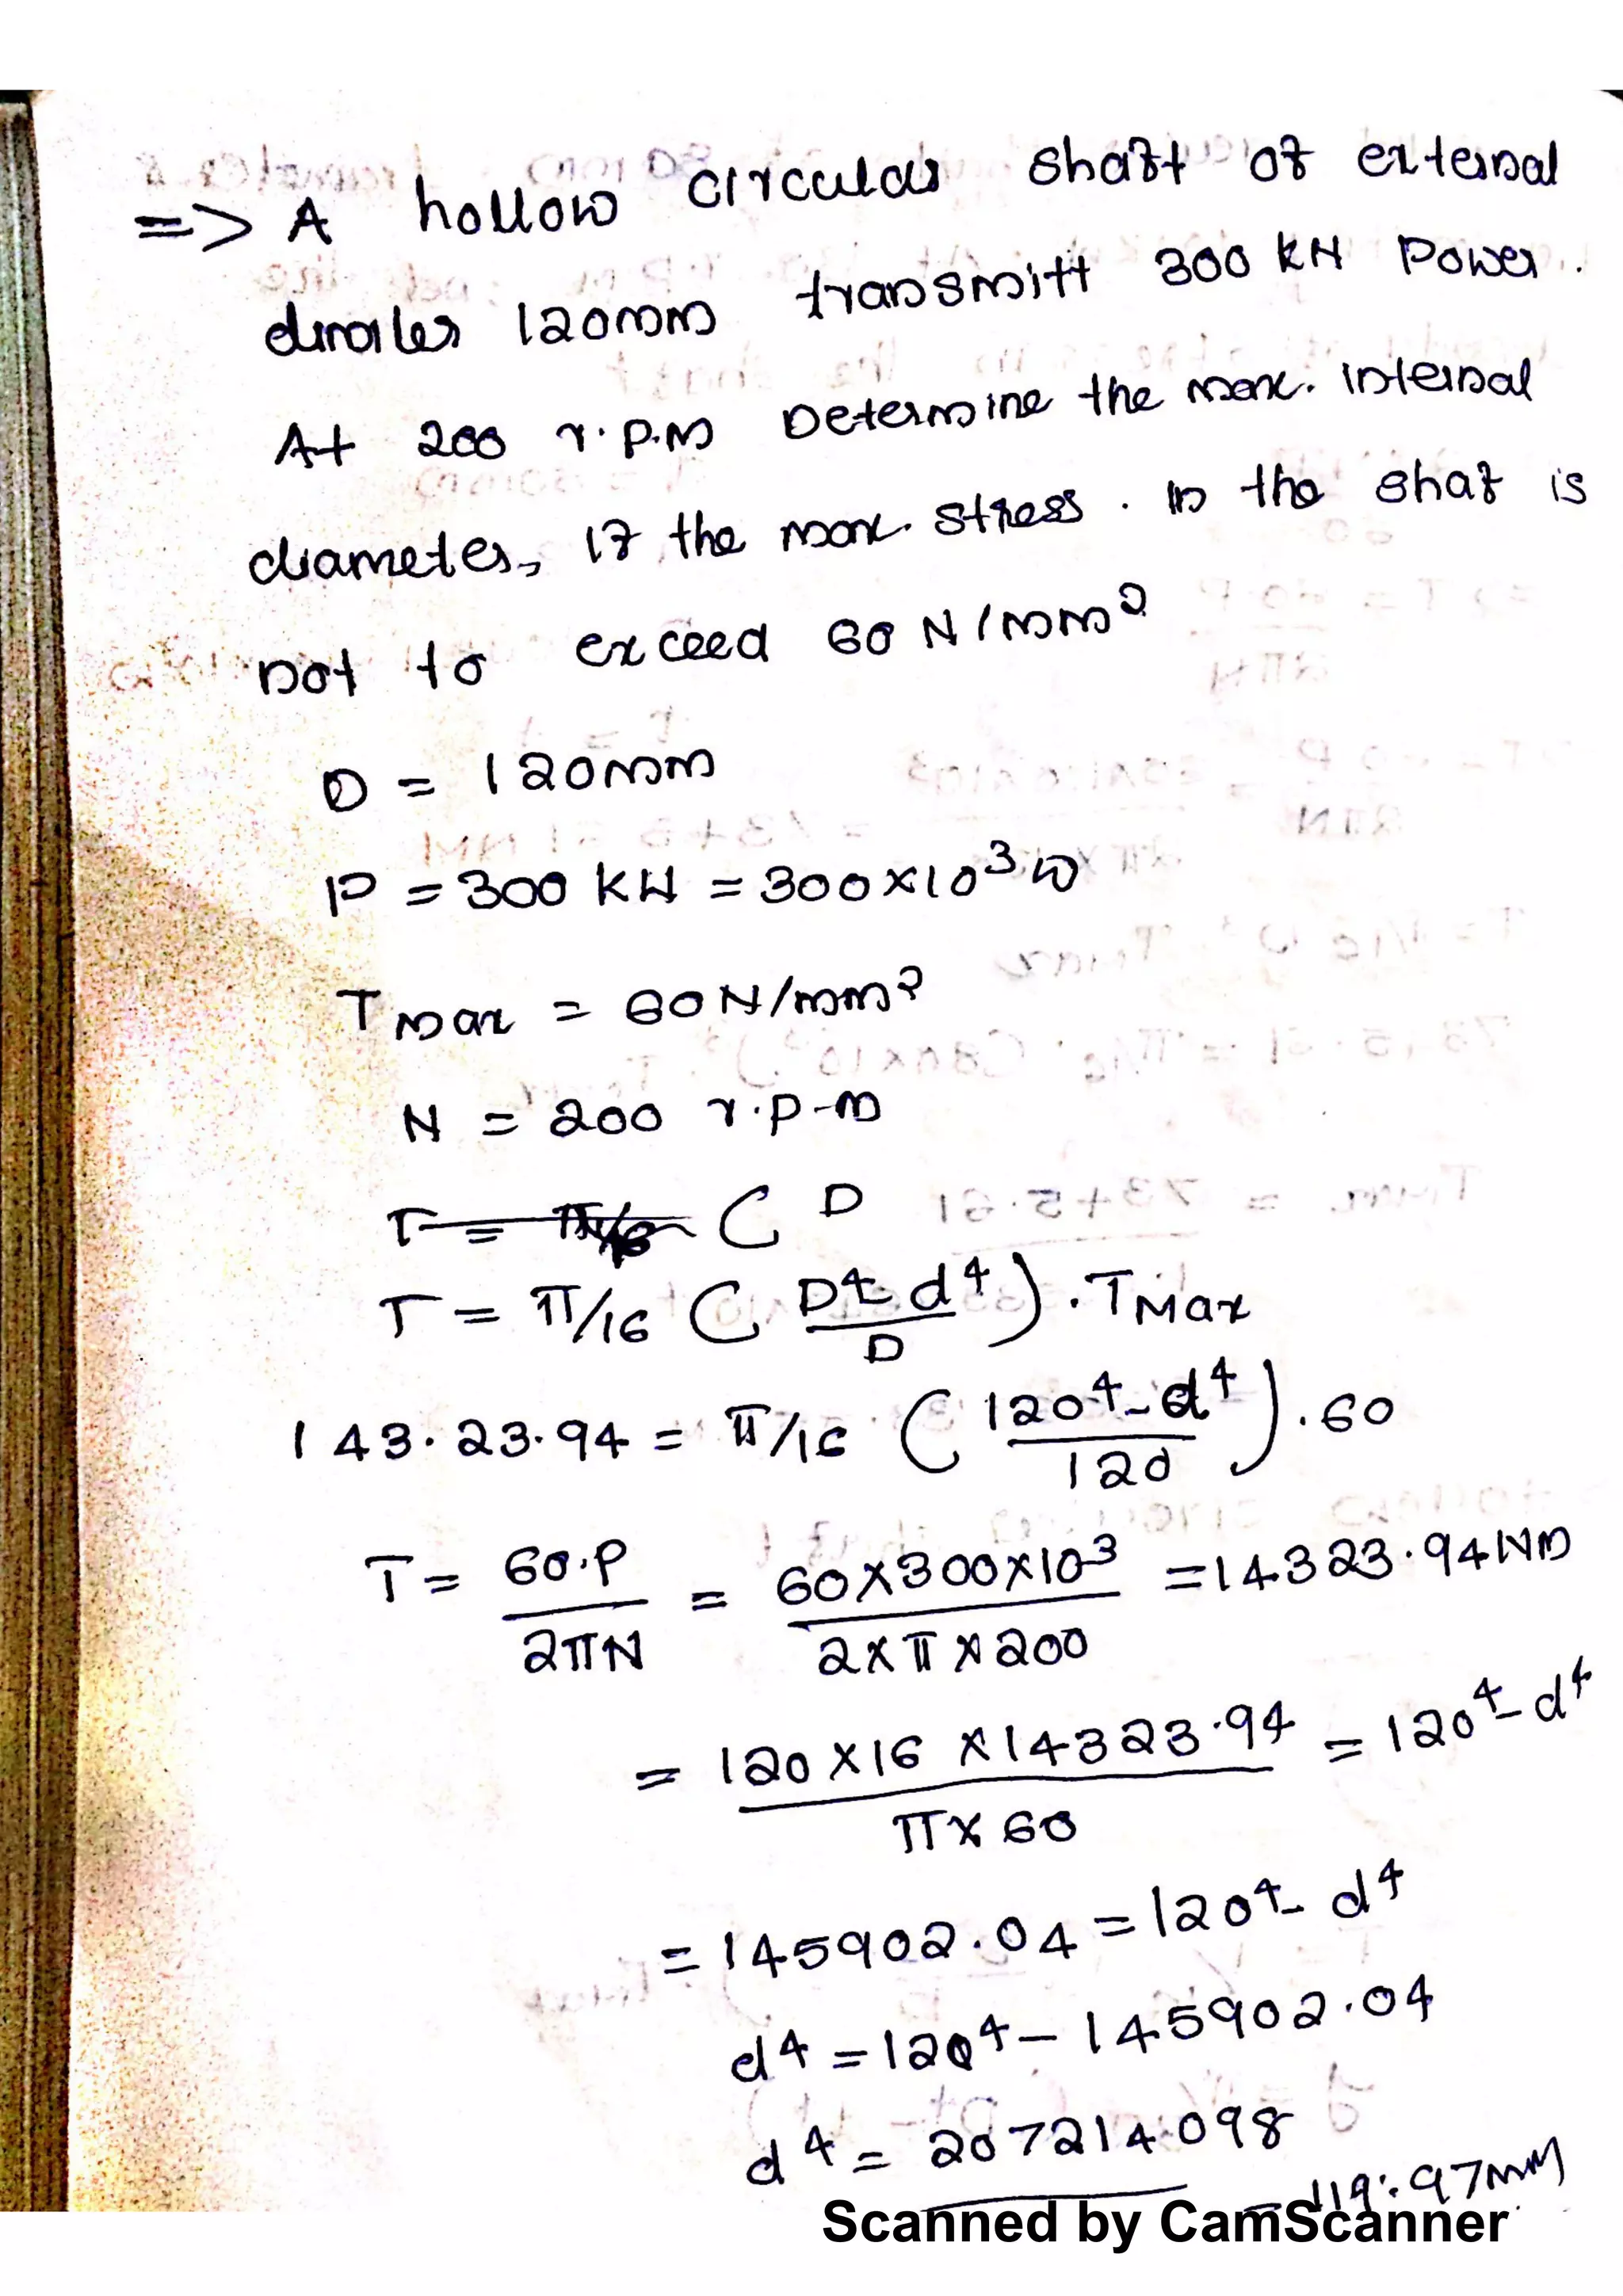 => A hollow circular shaft of external
diamiter 120mm transmitt 300 kN Power.
At 200 r.p.m Determine the max. internal
diameter, if the max. stress. in the shaf is
not to exceed 60 N/mm²
D = 120mm
P = 300 KW = 300×10³ W
Tmax = 60N/mm²
N = 200 r.p-m
T = π/16 ( D
T = π/16 ( D⁴-d⁴/D ) . TMax
143.23.94 = π/16 ( 120⁴-d⁴/120 ) .60
T = 60.P/2πN = 60×300×10³/2×π×200 = 14323.94 Nm
= 120×16×14323.94/π×60 = 120⁴-d⁴
= 145902.04 = 120⁴- d⁴
d⁴ = 120⁴- 145902.04
d⁴ = 207214098
= 119.97mm
Scanned by CamScanner